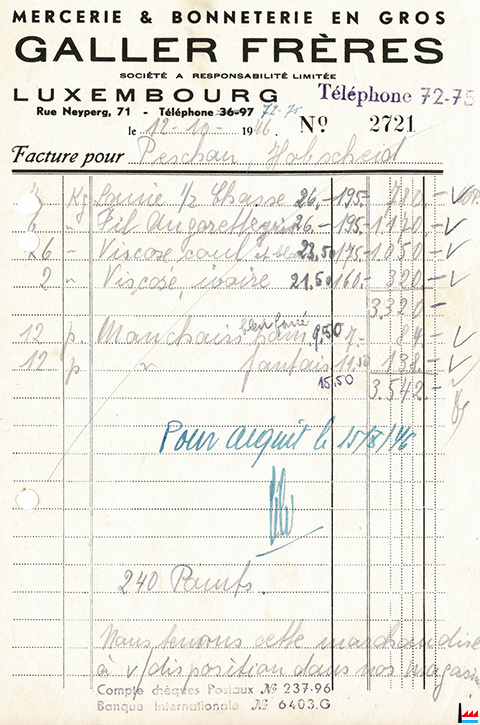 MERCERIE & BONNETERIE EN GROS
GALLER FRÈRES
SOCIÉTÉ A RESPONSABILITÉ LIMITÉE
LUXEMBOURG Téléphone 72-75
Rue Neyperg, 71 - Téléphone 36-97 72-75
le 12-10- 1946. Nº 2721
Facture pour Peschon, Hobscheid
4 Kg Laine 1/2 Chasse 26,- 195.- 780.-
6 " Fil 26- 195- 1170 -
6 - Viscose 23,50 175- 1050 -
2 " Viscose, ivoire 21.50 160.- 320 -
3.320 -
12 p. 9,50 7.- 84.-
12 p " fantais 11,50 138.-
15.50
3.542.-
Pour acquit le
240 Points.
Nous tenons cette marchandise
à v/disposition dans nos magasins
Compte chèques Postaux Nº 237-96
Banque Internationale Nº 6403.G